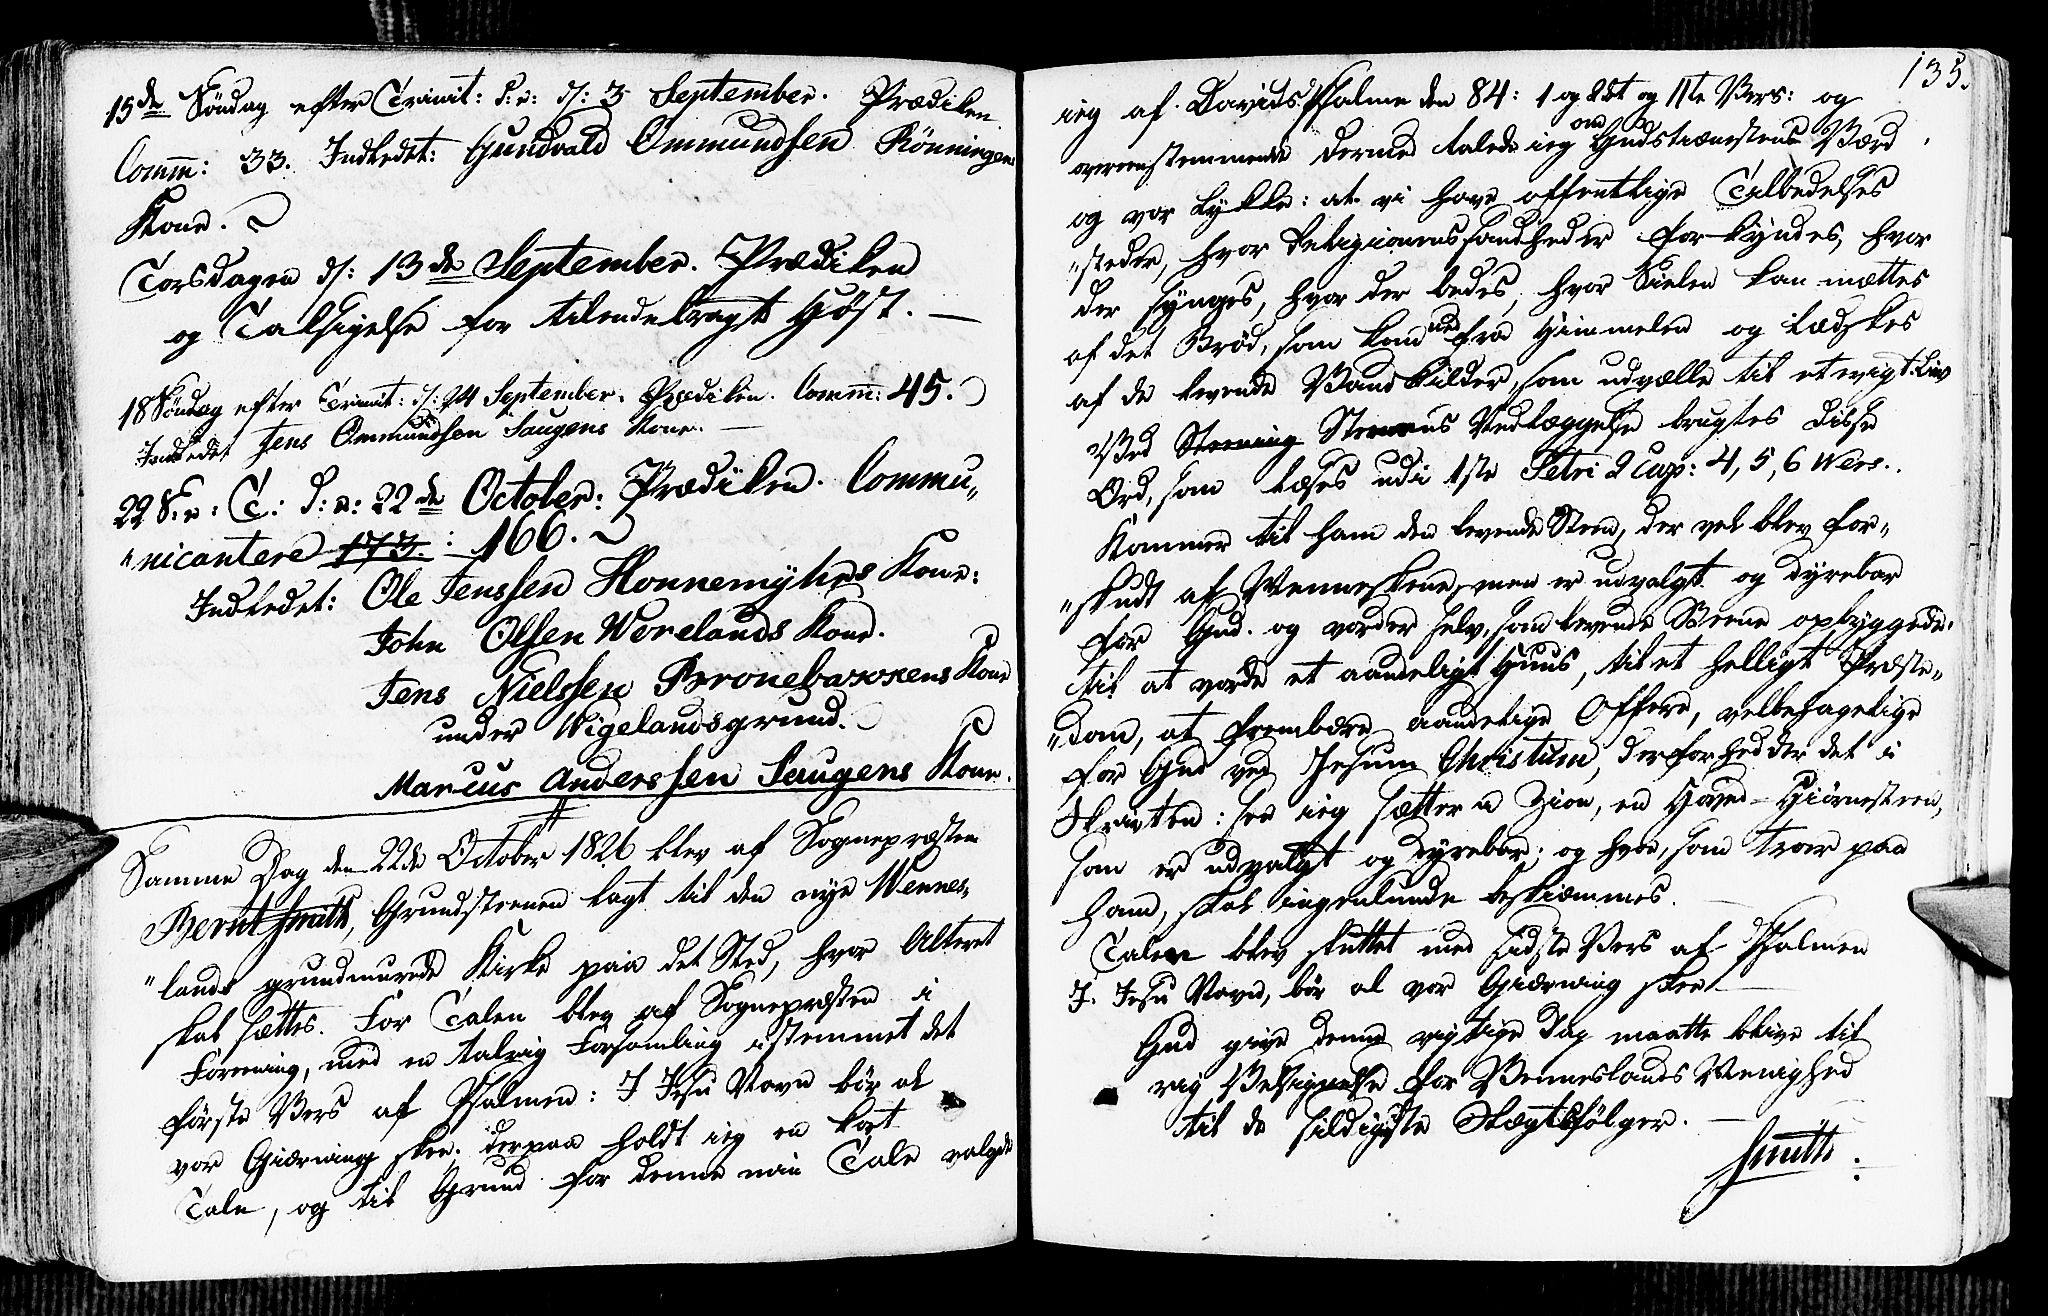 15de Søndag efter Trinit: d: e: d: 3 September. Prædiken
Comm: 33. Indledet: Gundvald Ommundsen Rønningens
Kone.
Torsdagen d: 13de September. Prædiken
og Taksigelse for tilendebragt Høst. —
18 Søndag efter Trinit: d: 24 September. Prædiken. Comm: 45.
Indledet Jens Ommundsen Haugens Kone. —
22 S. e: T: d: e: 22de October: Prædiken. Commu„
„nicantere 173. : 166.
Indledet: Ole Jenssen Honnemyhrs Kone:
John Olssen Morelands Kone.
Jens Nielssen Bronebakkens Kone
under Wigelandsgrund.
Marcus Anderssen Haugens Kone.
Samme Dag den 22de October 1826 blev af Sognepræsten
Bernt Smith, Grundsteenen lagt til den nye Wennes„
„lands grundmurede Kirke paa det Sted, hvor Alteret
skal sættes. For Talen blev af Sognepræsten i
Forening, med en talrig Forsamling istemmet det
første Vers af Psalmen: I Jesu Navn bør al
vor Giærning skee; derpaa holdt ieg en kort
Tale, og til Grund for denne min Tale valgde
135.
ieg af Davids Psalme den 84: 1 og 2det og 11te Vers: og
overeensstemmende dermed talede ieg om Gudstienestens Værd
og vor Lykke: at vi have offentlige Tilbedelses
„steder, hvor Religionens Sandheder forkyndes, hvor
der synges, hvor der bedes, hvor Sielen kan mættes
af det Brød, som kom ned fra Himmelen og lædskes
af de levende Vandkilder, som udvælle til et evigt Liv
Ved Steening Steenens Nedlæggelse brugtes disse
Ord, som læses udi 1ste Petri 2 Cap: 4, 5, 6 Vers.
Kommer til ham den levende Steen, der vel blev for„
„skudt af Menneskene, men er udvalgt og dyrebar
for Gud. og vorder selv, som levende Steene opbyggede
til at vorde et aandeligt Huus, til et helligt Præste„
„dom, at frembære aandelige Offere, velbehagelige
for Gud ved Jesum Christum, derfor hedder det i
Skriften: see ieg sætter i Zion, en Hoved-Hiørnesteen,
som er udvalgt og dyrebar; og hvo, som troer paa
ham, skal ingenlunde beskiæmmes.
Talen blev sluttet med sidste Vers af Psalmen
I Jesu Navn, bør al vor Giærning skee —
Gud give denne vigtige Dag maatte blive til
rig Velsignelse for Venneslands Menighed
til de sildigste Slægtsfølger. —
Smith.